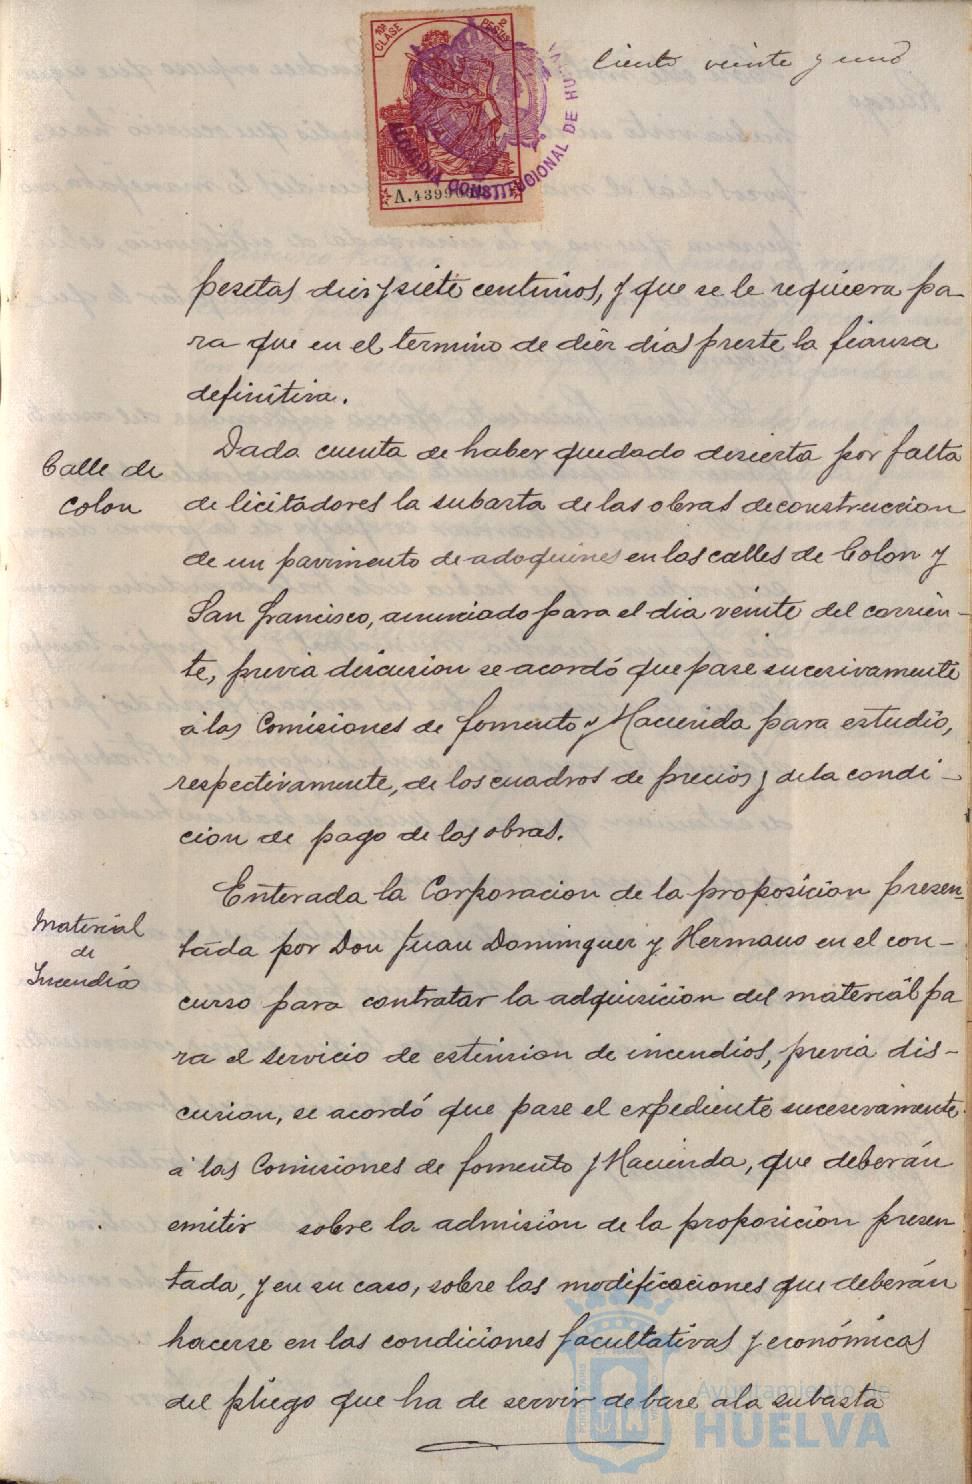 10ª CLASE
2 PESETAS
ALCALDIA CONSTITUCIONAL DE HUELVA
A.4399
Ciento veinte y uno
pesetas diez y siete centimos, y que se le requiera pa-
ra que en el termino de diez dias preste la fianza
definitiva.
Calle de
Colon
Dada cuenta de haber quedado desierta por falta
de licitadores la subasta de las obras de construccion
de un pavimento de adoquines en las calles de Colon y
San francisco, anunciado para el dia veinte del corrien-
te, previa discusion se acordó que pase sucesivamente
á las Comisiones de fomento y Hacienda para estudio,
respectivamente, de los cuadros de precios y de la condi-
cion de pago de las obras.
Material
de
Incendios
Enterada la Corporacion de la proposicion presen-
tada por Don Juan Dominguez y Hermano en el con-
curso para contratar la adquisicion del material pa
ra el servicio de estinsion de incendios, previa dis-
cusion, se acordó que pase el expediente sucesivamente
á las Comisiones de fomento y Hacienda, que deberán
emitir sobre la admision de la proposicion presen
tada, y en su caso, sobre las modificaciones que deberán
hacerse en las condiciones facultativas y económicas
del pliego que ha de servir de base a la subasta
Ayuntamiento de
HUELVA